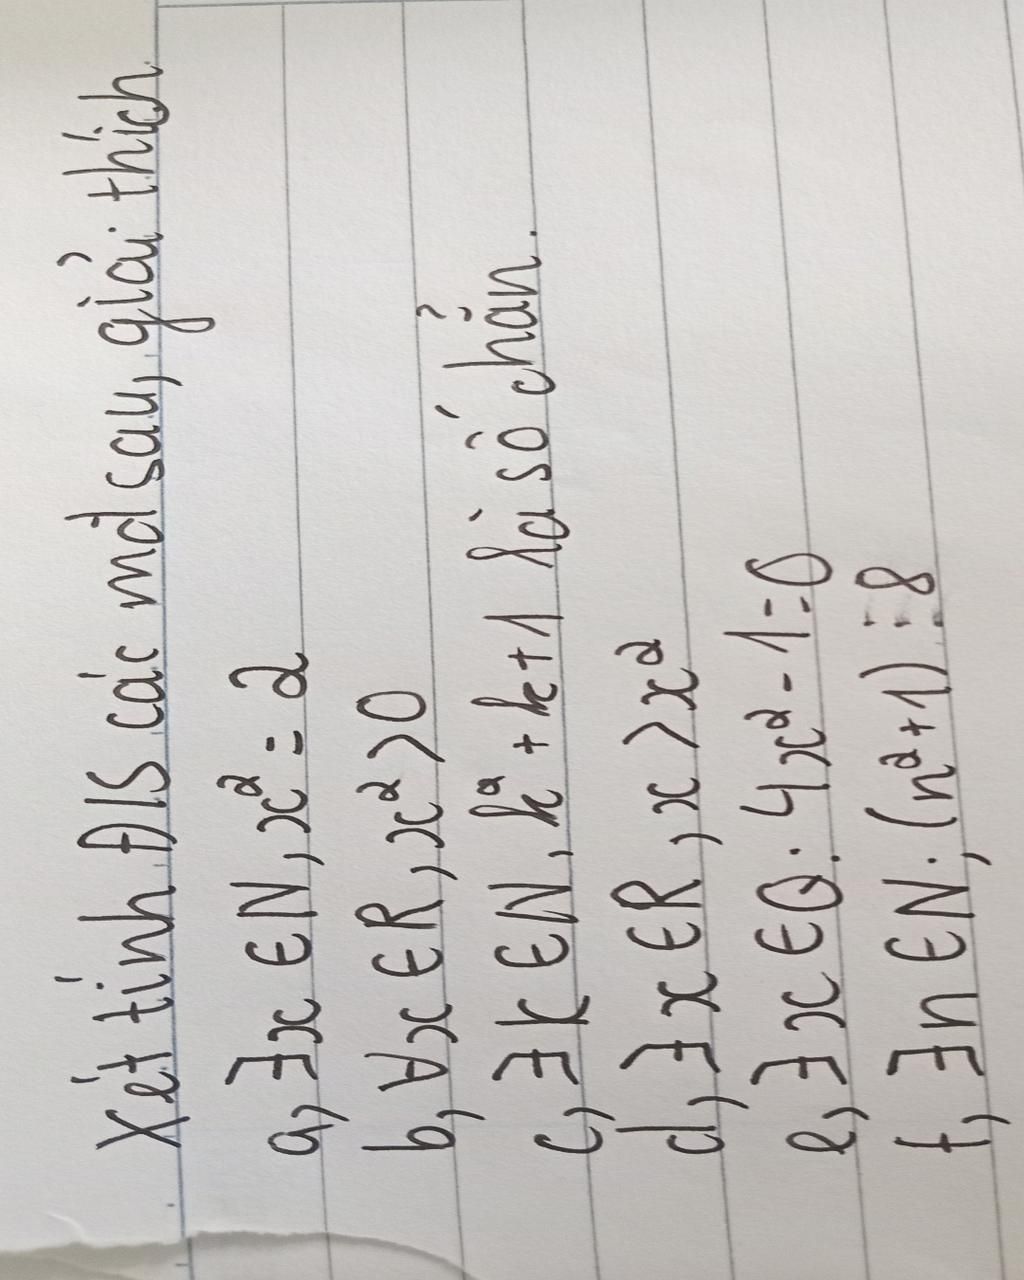 Xét tính Đ/S các mđ sau, giải thích.
a, ∃x ∈ N, x² = 2
b, ∀x ∈ R, x² > 0
c, ∃k ∈ N, k² + k + 1 là số chẵn.
d, ∃x ∈ R, x > x²
e, ∃x ∈ Q: 4x² - 1 = 0
f, ∃n ∈ N; (n² + 1) ⋮ 8